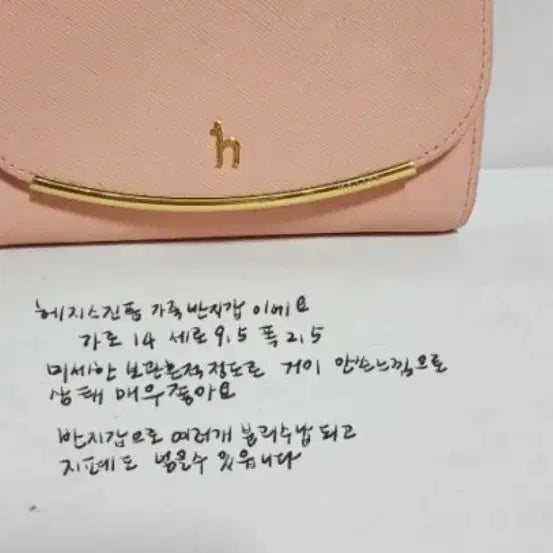 h
헤지스진품 가죽 반지갑 이에요
가로 14 세로 9.5 폭 2.5
미세한 보관흔적정도로 거이 안쓴느낌으로
상태 매우좋아요
반지갑으로 여러개 분리수납 되고
지폐도 넣을수 있습니다